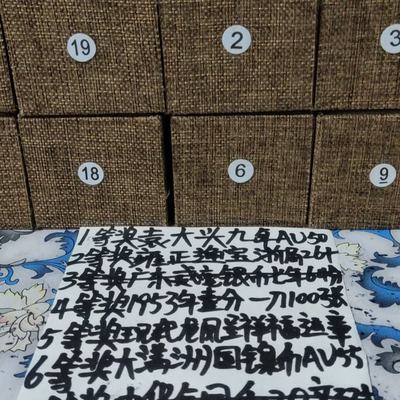 19
2
3
18
6
9
1等奖袁大头九年AU50
2等奖雍正通宝
3等奖广东贰毫银币七年
4等奖1953年壹分一刀100张
5等奖现代龙凤呈祥福运章
6等奖大满洲国镍币AU55